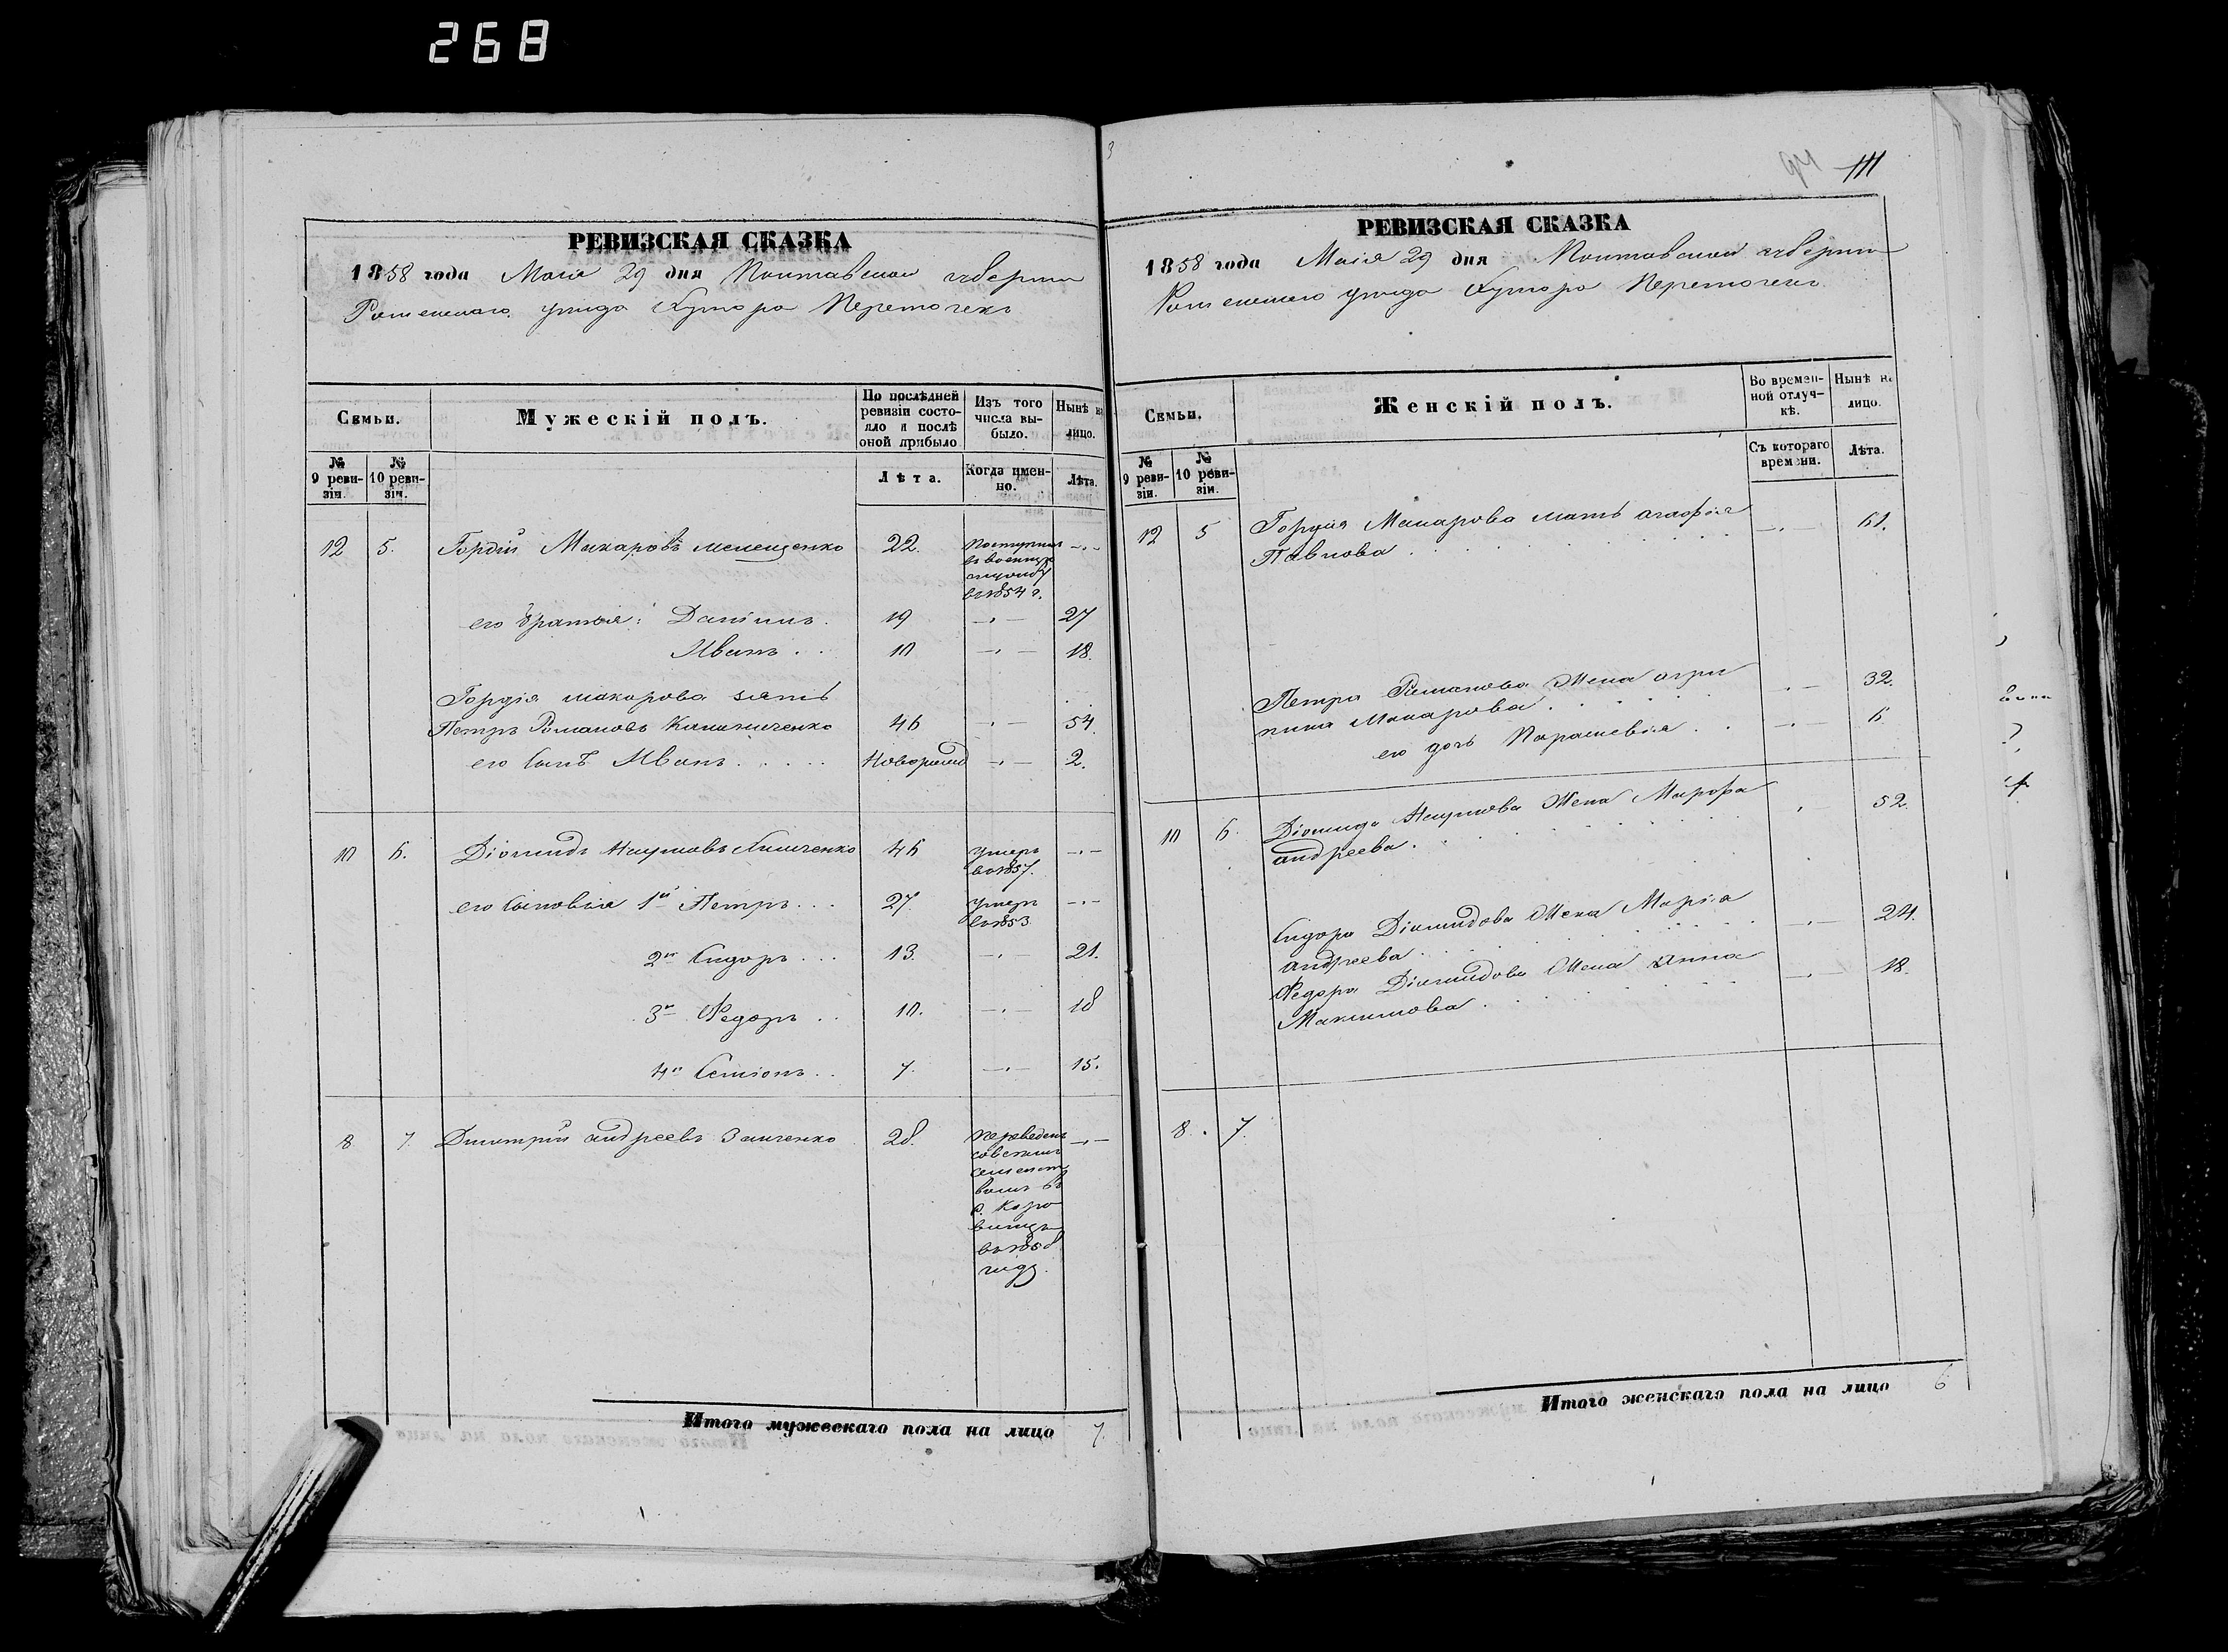 268
РЕВИЗСКАЯ СКАЗКА
1858 года Маія 29 дня Полтавской губерніи
Роменскаго уѣзда Хутора Переточекъ
Семьи.
Мужескій полъ.
По послѣдней ревизіи состояло и послѣ оной прибыло
Изъ того числа выбыло.
Нынѣ на лицо.
№ 9 ревизіи.
№ 10 ревизіи.
Лѣта.
Когда именно.
Лѣта.
12 5. Гордій Макаровъ 22. Поступилъ —·—
въ военную
службу
въ 1854 г.
его братья: Даніилъ. 19 —·— 27
Иванъ . . 10 —·— 18.
Гордія Макарова зять
Петръ Романовъ Калиниченко 46 —·— 54.
его сынъ Иванъ . . . . . Новорожд —·— 2.
10 6. Діомидъ Наумовъ 46 умеръ —·—
въ 1857.
его сыновья 1й Петръ . . . 27. умеръ —·—
въ 1853
2й Сидоръ . . . 13. —·— 21.
3й Федоръ . . 10. —·— 18
4й Семіонъ . . 7. —·— 15.
8 7. Димитрій Андреевъ Заиченко 28. переведенъ —·—
со всѣмъ
семейст
вомъ въ
с. Коро
винцы
въ 1858
году.
Итого мужескаго пола на лицо 7.
94 111
РЕВИЗСКАЯ СКАЗКА
1858 года Маія 29 дня Полтавской губерніи
Роменскаго уѣзда Хутора Переточекъ
Семьи.
Женскій полъ.
Во временной отлучкѣ.
Нынѣ на лицо.
№ 9 ревизіи.
№ 10 ревизіи.
Съ котораго времени.
Лѣта.
12 5 Гордія Макарова мать Агафія —·— 61.
Павлова . . . . . . . .
Петра Романова жена Агри —·— 32.
пина Макарова . . . . .
его дочь Параскевія . . —·— 6.
10 6. Діомида Наумова жена Марфа —·— 52.
Андреева . . . . . . . .
Сидора Діомидова жена Марія —·— 24.
Андреева . . . . . . . .
Федора Діомидова жена Анна —·— 18.
Максимова . . . . . . .
8. 7.
Итого женскаго пола на лицо 6